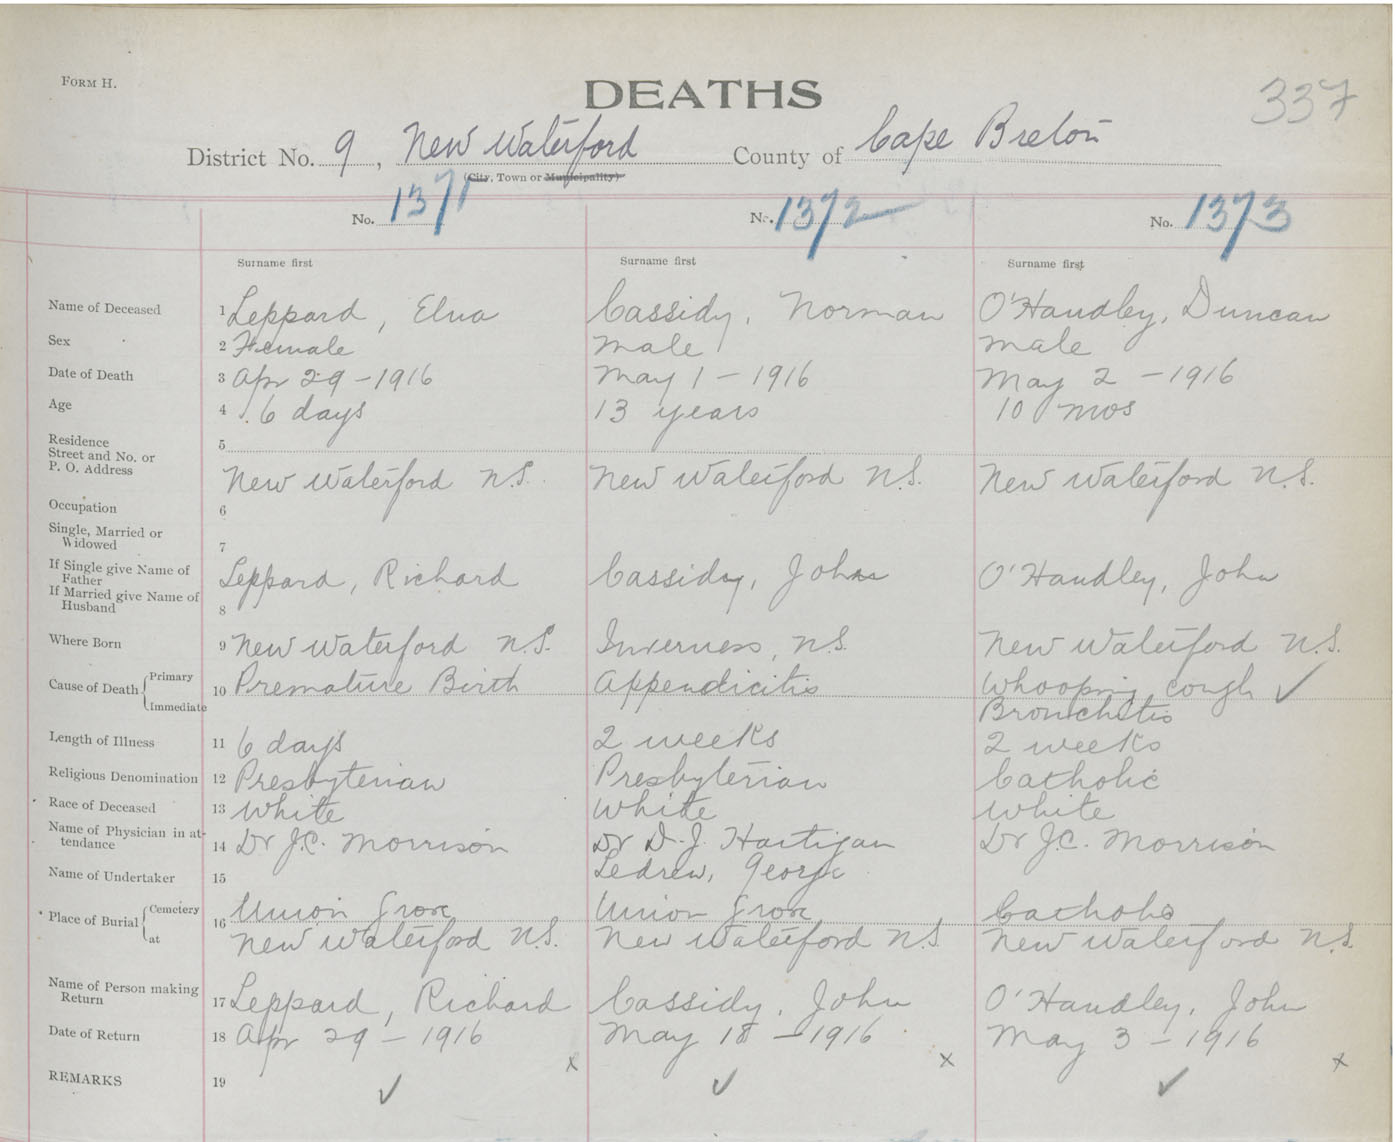 FORM H.
DEATHS
337
District No. 9, New Waterford County of Cape Breton
(City, Town or Municipality)
No. 1371 No. 1372 No. 1373
Surname first Surname first Surname first
Name of Deceased 1 Leppard, Elna Cassidy, Norman O'Handley, Duncan
Sex 2 Female male male
Date of Death 3 Apr 29-1916 May 1-1916 May 2-1916
Age 4 6 days 13 years 10 mos
Residence 5
Street and No. or
P. O. Address New Waterford N.S. New Waterford N.S. New Waterford N.S.
Occupation 6
Single, Married or
Widowed 7
If Single give Name of
Father Leppard, Richard Cassidy, John O'Handley, John
If Married give Name of
Husband 8
Where Born 9 New Waterford N.S. Inverness, N.S. New Waterford N.S.
Cause of Death Primary 10 Premature Birth Appendicitis Whooping cough ✓
Immediate Bronchitis
Length of Illness 11 6 days 2 weeks 2 weeks
Religious Denomination 12 Presbyterian Presbyterian Catholic
Race of Deceased 13 White White White
Name of Physician in at-
tendance 14 Dr J.C. Morrison Dr D.J. Hartigan Dr J.C. Morrison
Name of Undertaker 15 Ledrew, George
Place of Burial Cemetery 16 Union Grove Union Grove, Catholic
at New Waterford N.S. New Waterford N.S. New Waterford N.S.
Name of Person making
Return 17 Leppard, Richard Cassidy, John O'Handley, John
Date of Return 18 Apr 29-1916 May 18-1916 May 3-1916
x x x
REMARKS 19 ✓ ✓ ✓